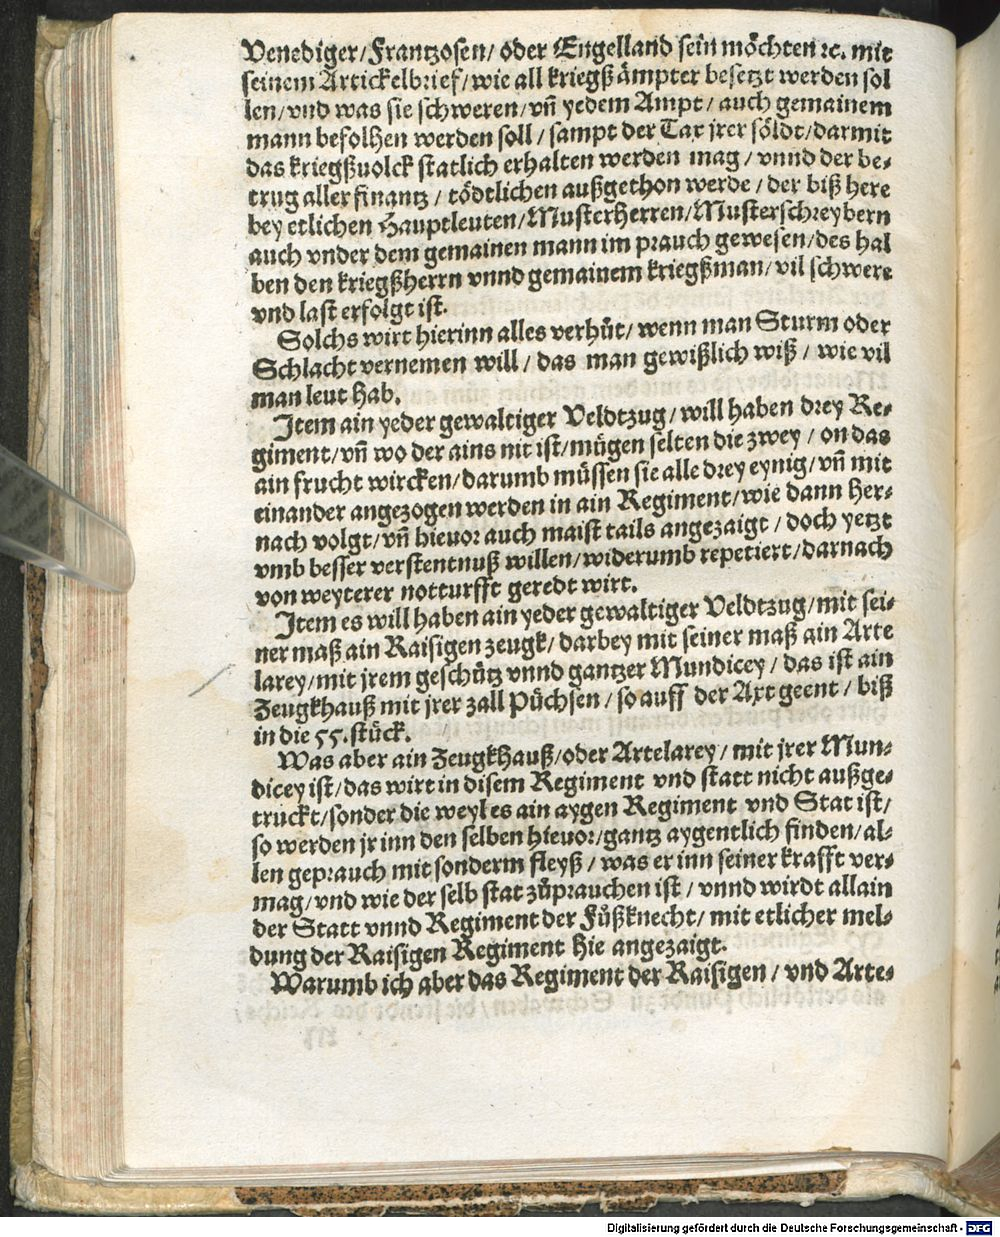 Venediger/Frantzosen/ oder Engelland sein möchten ꝛc. mit
seinem Artickelbrief/ wie all kriegß ämpter besetzt werden sol
len/ vnd was sie schweren/ vñ yedem Ampt/ auch gemainem
mann befolhen werden soll/ sampt der Tax jrer söldt/ darmit
das kriegßuolck statlich erhalten werden mag/ vnnd der be-
trug aller finantz/ tödtlichen außgethon werde/ der biß here
bey etlichen Hauptleuten/ Musterherren/ Musterschreybern
auch vnder dem gemainen mann im prauch gewesen/ des hal
ben den kriegßherrn vnnd gemainem kriegßman/ vil schwere
vnd last erfolgt ist.
Solchs wirt hierinn alles verhüt/ wenn man Sturm oder
Schlacht vernemen will/ das man gewißlich wiß/ wie vil
man leut hab.
Item ain yeder gewaltiger Veldtzug/ will haben drey Re-
giment/ vñ wo der ains nit ist/ mügen selten die zwey/ on das
ain frucht wircken/ darumb müssen sie alle drey eynig/ vñ mit
einander angezogen werden in ain Regiment/ wie dann her-
nach volgt/ vñ hieuor auch maist tails angezaigt/ doch yetzt
vmb besser verstentnuß willen/ widerumb repetiert/ darnach
von weyterer notturfft geredt wirt.
Item es will haben ain yeder gewaltiger Veldtzug/ mit sei-
ner maß ain Raisigen zeugk/ darbey mit seiner maß ain Arte
larey/ mit jrem geschütz vnnd gantzer Mundicey/ das ist ain
Zeugkhauß mit jrer zall Püchsen/ so auff der Axt geent/ biß
in die 55. stück.
Was aber ain Zeugkhauß/ oder Artelarey/ mit jrer Mun-
dicey ist/ das wirt in disem Regiment vnd statt nicht außge-
truckt/ sonder die weyl es ain aygen Regiment vnd Stat ist/
so werden jr inn den selben hieuor/ gantz aygentlich finden/ al-
len geprauch mit sonderm fleyß/ was er inn seiner krafft ver-
mag/ vnd wie der selb stat zůprauchen ist/ vnnd wirdt allain
der Statt vnnd Regiment der Fůßknecht/ mit etlicher mel-
dung der Raisigen Regiment hie angezaigt.
Warumb ich aber das Regiment der Raisigen/ vnd Arte-
Digitalisierung gefördert durch die Deutsche Forschungsgemeinschaft - DFG